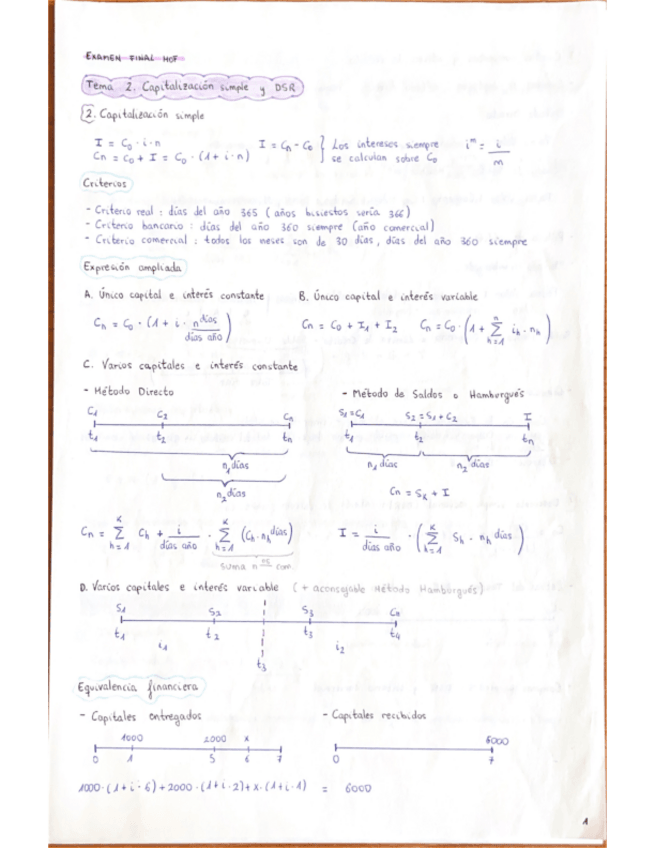 EXAMEN FINAL MOF
Tema 2. Capitalización simple y DSR
2. Capitalización simple
I = C₀ · i · n
Cn = C₀ + I = C₀ · (1 + i · n)
I = Cn - C₀ } Los intereses siempre
se calculan sobre C₀
i^m = i / m
Criterios
- Criterio real : días del año 365 (años bisiestos sería 366)
- Criterio bancario : días del año 360 siempre (año comercial)
- Criterio comercial : todos los meses son de 30 días, días del año 360 siempre
Expresión ampliada
A. Único capital e interés constante
Cn = C₀ · (1 + i · n días / días año)
B. Único capital e interés variable
Cn = C₀ + I₁ + I₂ Cn = C₀ · (1 + Σ n h=1 ih · nh)
C. Varios capitales e interés constante
- Método Directo
C1 C2 Cn
t1 t2 tn
n1 días
n2 días
Cn = Σ K h=1 Ch + i / días año · Σ K h=1 (Ch · nh días)
suma nos com.
- Método de Saldos o Hamburgués
S1 = C1 S2 = S1 + C2 I
t1 t2 tn
n1 días n2 días
Cn = SK + I
I = i / días año · (Σ K h=1 Sh · nh días)
D. Varios capitales e interés variable (+ aconsejable Método Hamburgués)
S1 S2 S3 Cn
t1 t2 t3 t4
i1 i2
t3
Equivalencia financiera
- Capitales entregados
1000 2000 x
0 1 5 6 7
- Capitales recibidos
6000
0 7
1000 · (1 + i · 6) + 2000 · (1 + i · 2) + x · (1 + i · 1) = 6000
1